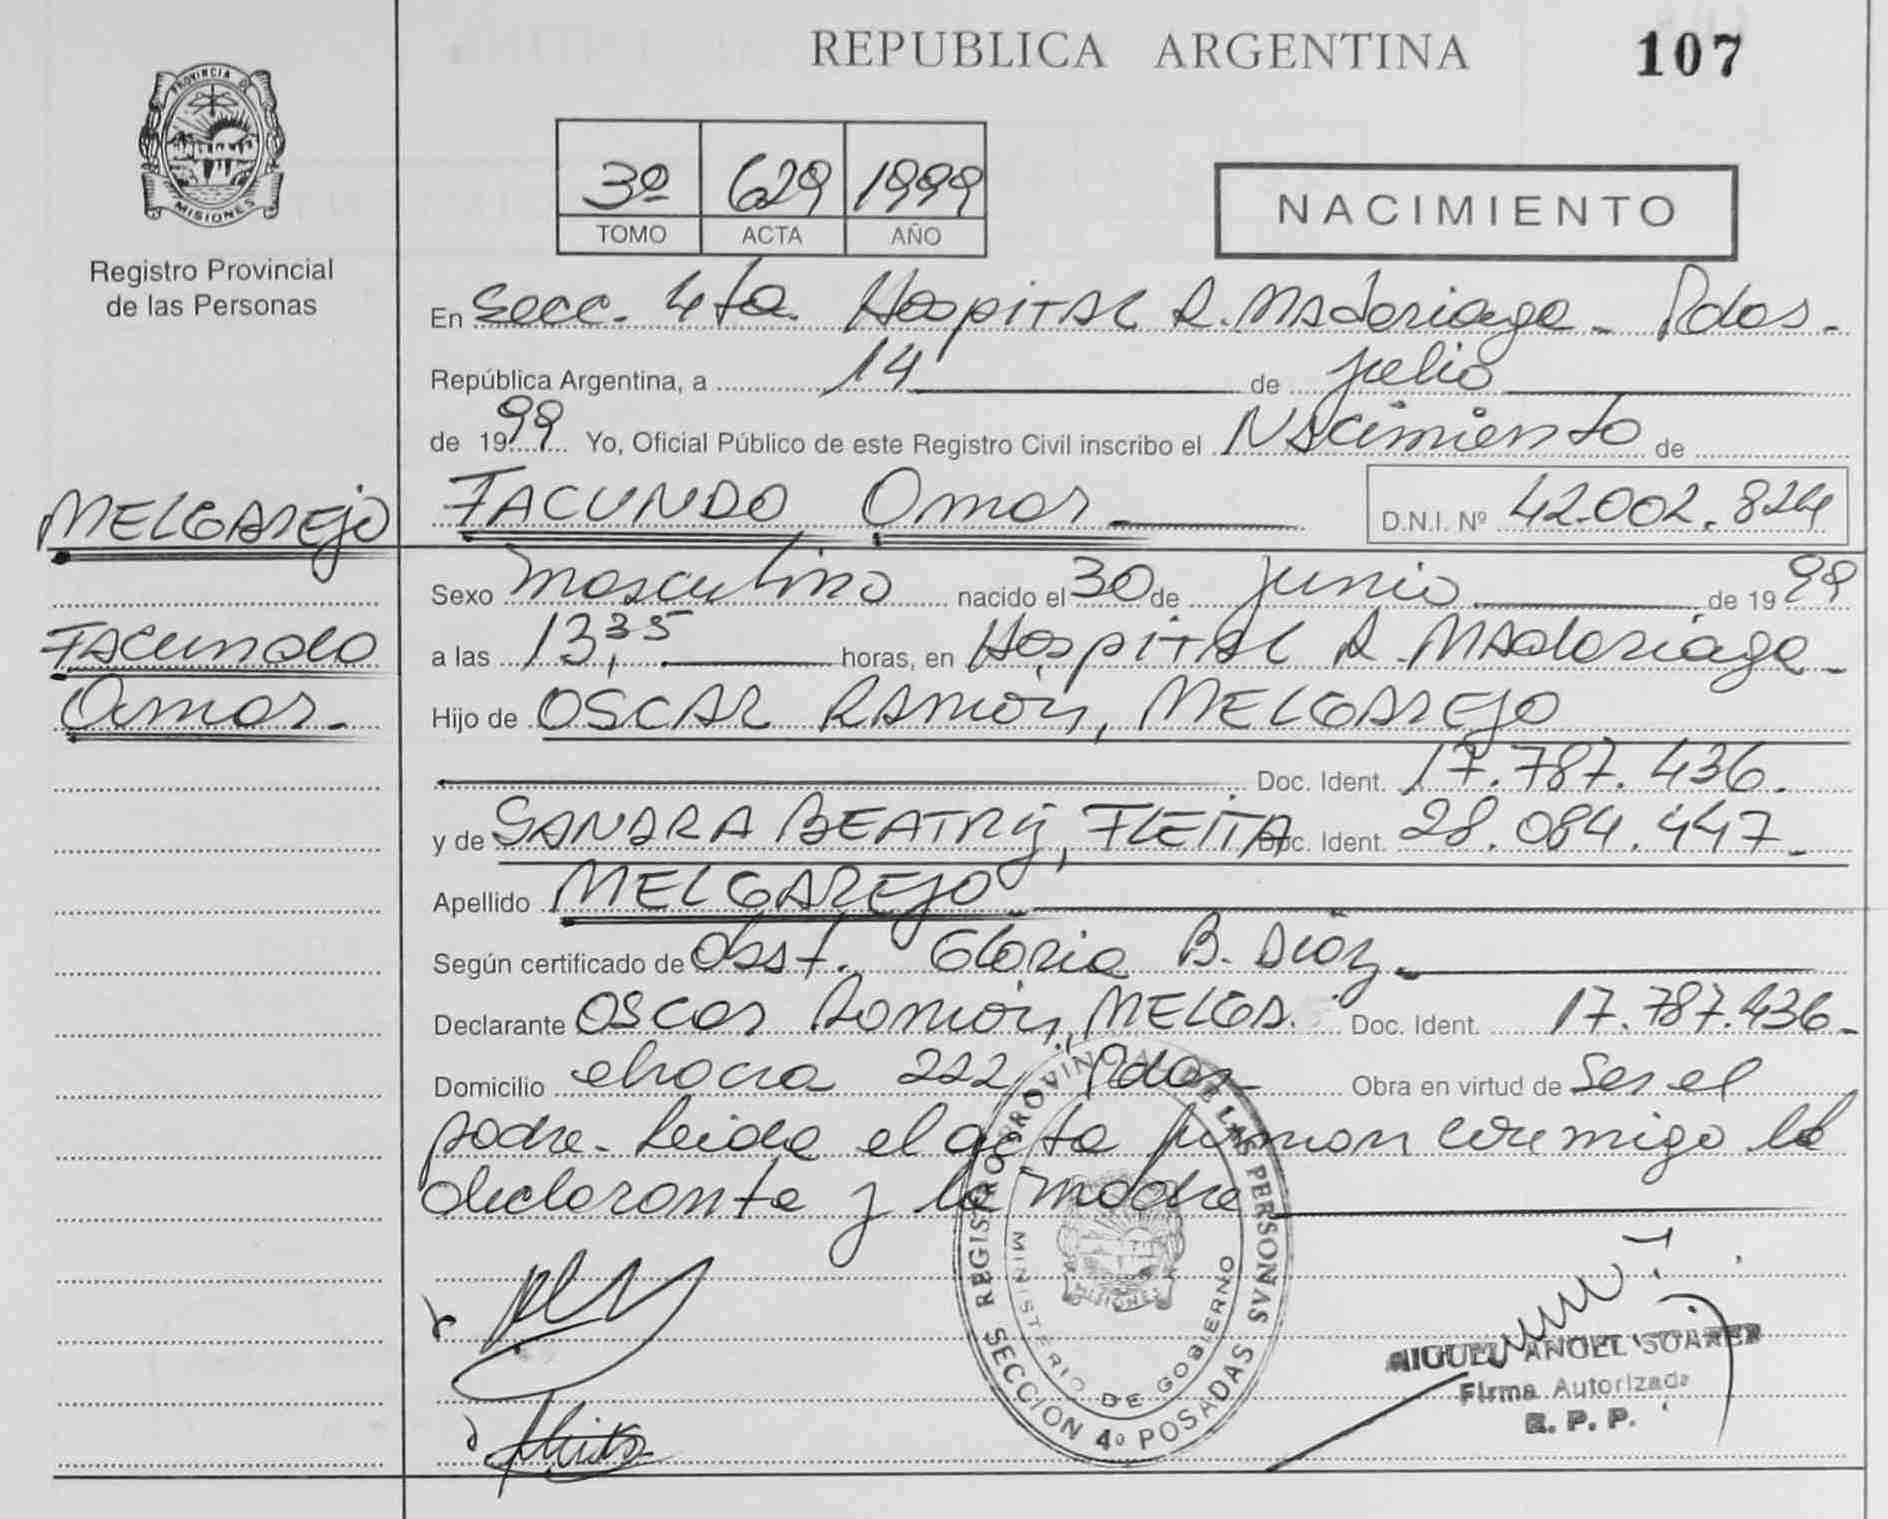 REPUBLICA ARGENTINA 107
PROVINCIA DE
MISIONES
Registro Provincial
de las Personas
3º 629 1999
TOMO ACTA AÑO
NACIMIENTO
En Secc. 4ta. Hospital R. Madariaga - Pdas.
República Argentina, a 14 de julio
de 1999 Yo, Oficial Público de este Registro Civil inscribo el Nacimiento de
MELGAREJO
FACUNDO Omar D.N.I. Nº 42.002.824
Sexo masculino nacido el 30 de junio de 1999
Facundo
a las 13,35 horas, en Hospital R. Madariaga-
Omar.-
Hijo de OSCAR RAMÓN, MELGAREJO
Doc. Ident. 17.787.436.
y de SANDRA BEATRIZ, FLEITA Doc. Ident. 28.084.447.-
Apellido MELGAREJO
Según certificado de Obst. Gloria B. Díaz.
Declarante Oscar Ramón, MELGA. Doc. Ident. 17.787.436.-
Domicilio 222, Pdas. Obra en virtud de Ser el
padre- Leida el acta firman conmigo
declarante y la madre
REGISTRO PROVINCIAL DE LAS PERSONAS
MINISTERIO DE GOBIERNO
MISIONES
SECCION 4º POSADAS
MIGUEL ANGEL SUAREZ
Firma Autorizada
R. P. P.